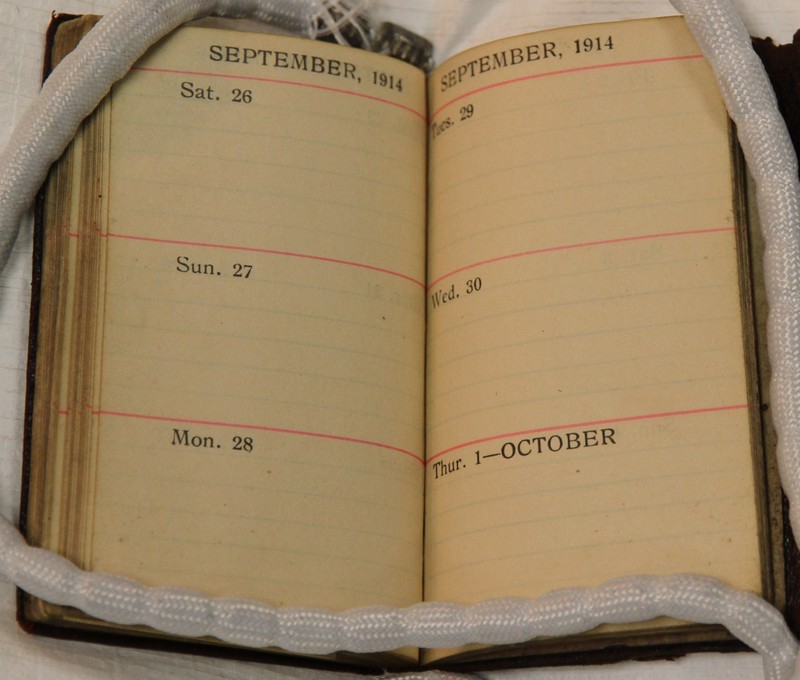 SEPTEMBER, 1914
Sat. 26
Sun. 27
Mon. 28
SEPTEMBER, 1914
Tues. 29
Wed. 30
Thur. 1—OCTOBER